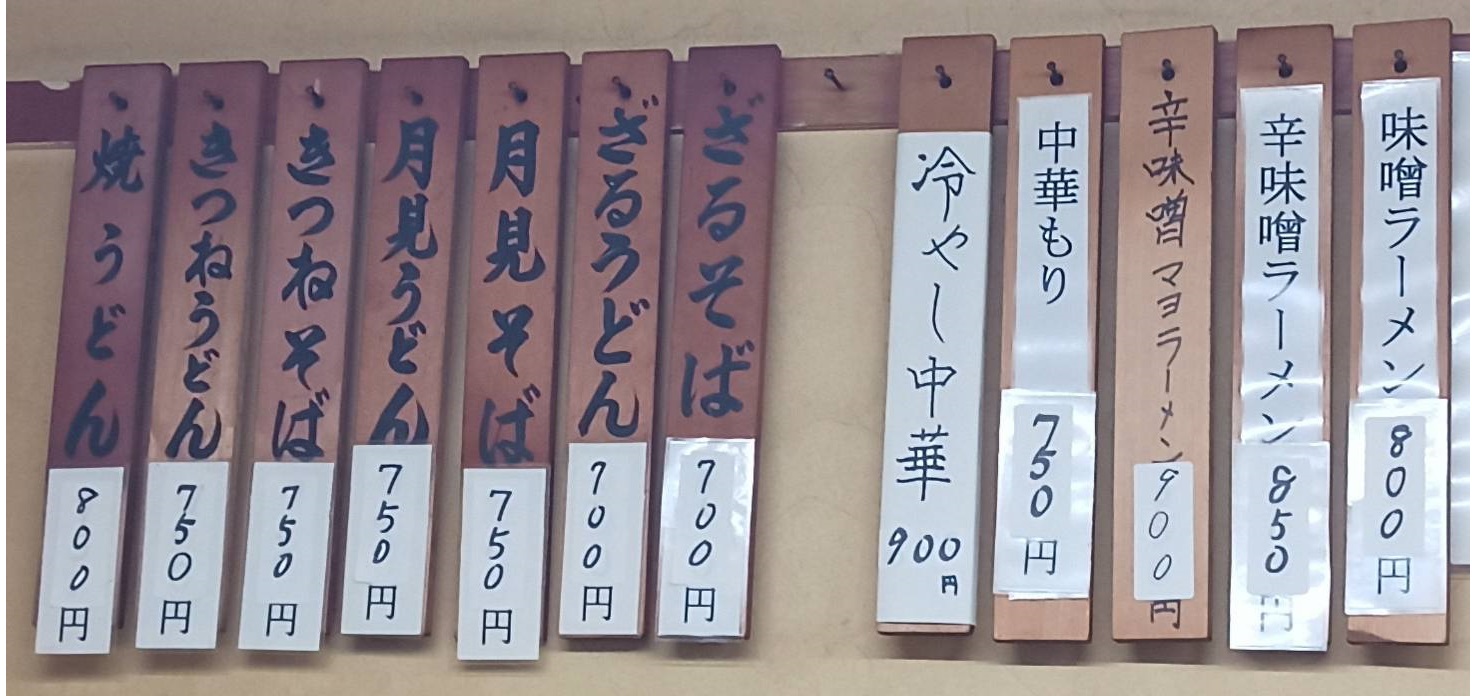 味噌ラーメン 800円
辛味噌ラーメン 850円
辛味噌マヨラーメン 900円
中華もり 750円
冷やし中華 900円
ざるそば 700円
ざるうどん 700円
月見そば 750円
月見うどん 750円
きつねそば 750円
きつねうどん 750円
焼うどん 800円